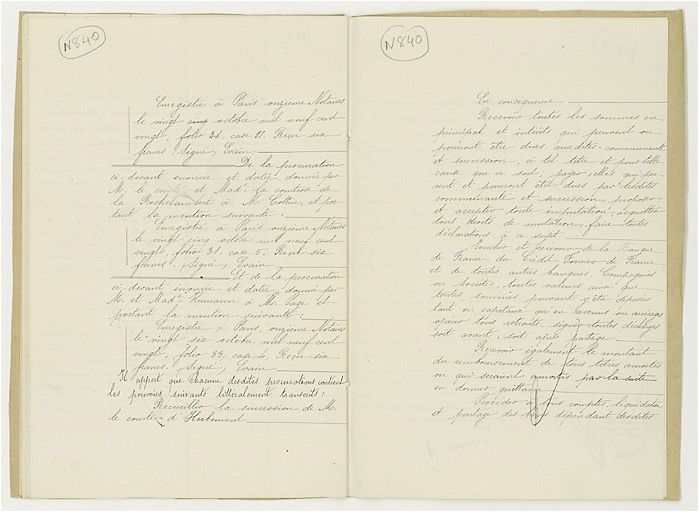 N840
Enregistré à Paris onzième Notaires
le vingt cinq octobre mil neuf cent
vingt, folio 21. case 11. Reçu six
francs, Signé, Evain.
De la procuration
ci-devant énoncée et datée, donnée par
M. le comte et Made la comtesse de
la Rochelambert à M. Cottin, et por
tant la mention suivante:
Enregistré à Paris, onzième Notaires
le vingt cinq octobre mil neuf cent
vingt, folio 21. case 5. Reçu six
francs. Signé, Evain
Et de la procuration
ci-devant énoncée et datée, donnée par
M. et Made Humann à M. Sage et
portant la mention suivante:
Enregistré à Paris, onzième Notaires
le vingt six octobre mil neuf cent
vingt, folio 33. case 4. Reçu six
francs. Signé, Evain
Il appert que chacune desdites procurations contient
les pouvoirs suivants littéralement transcrits:
Recueillir la succession de M.
le comte d'Herbemont
N840
En conséquence.
Recevoir toutes les sommes en
principal et intérêts qui peuvent ou
pourront être dues auxdites communauté
et succession, à tel titre et pour telle
cause que ce soit; payer celles qui peu-
vent et pourront être dues par lesdites
communauté et succession, proposer
et accepter toute imputation, acquitter
tous droits de mutation, faire toutes
déclarations à ce sujet.
Toucher et recevoir de la Banque
de France, du Crédit Foncier de France
et de toutes autres banques, Compagnies
ou Sociétés, toutes valeurs ainsi que
toutes sommes pouvant y être déposées
tant en capitaux qu'en revenus ou arrérages
opérer tous retraits, signer toutes décharges
soit avant, soit après partage.
Recevoir également le montant
du remboursement de tous titres amortis
ou qui seraient amortis par la suite
en donner quittance
Procéder à tous comptes, liquidation
et partage des biens dépendant desdites